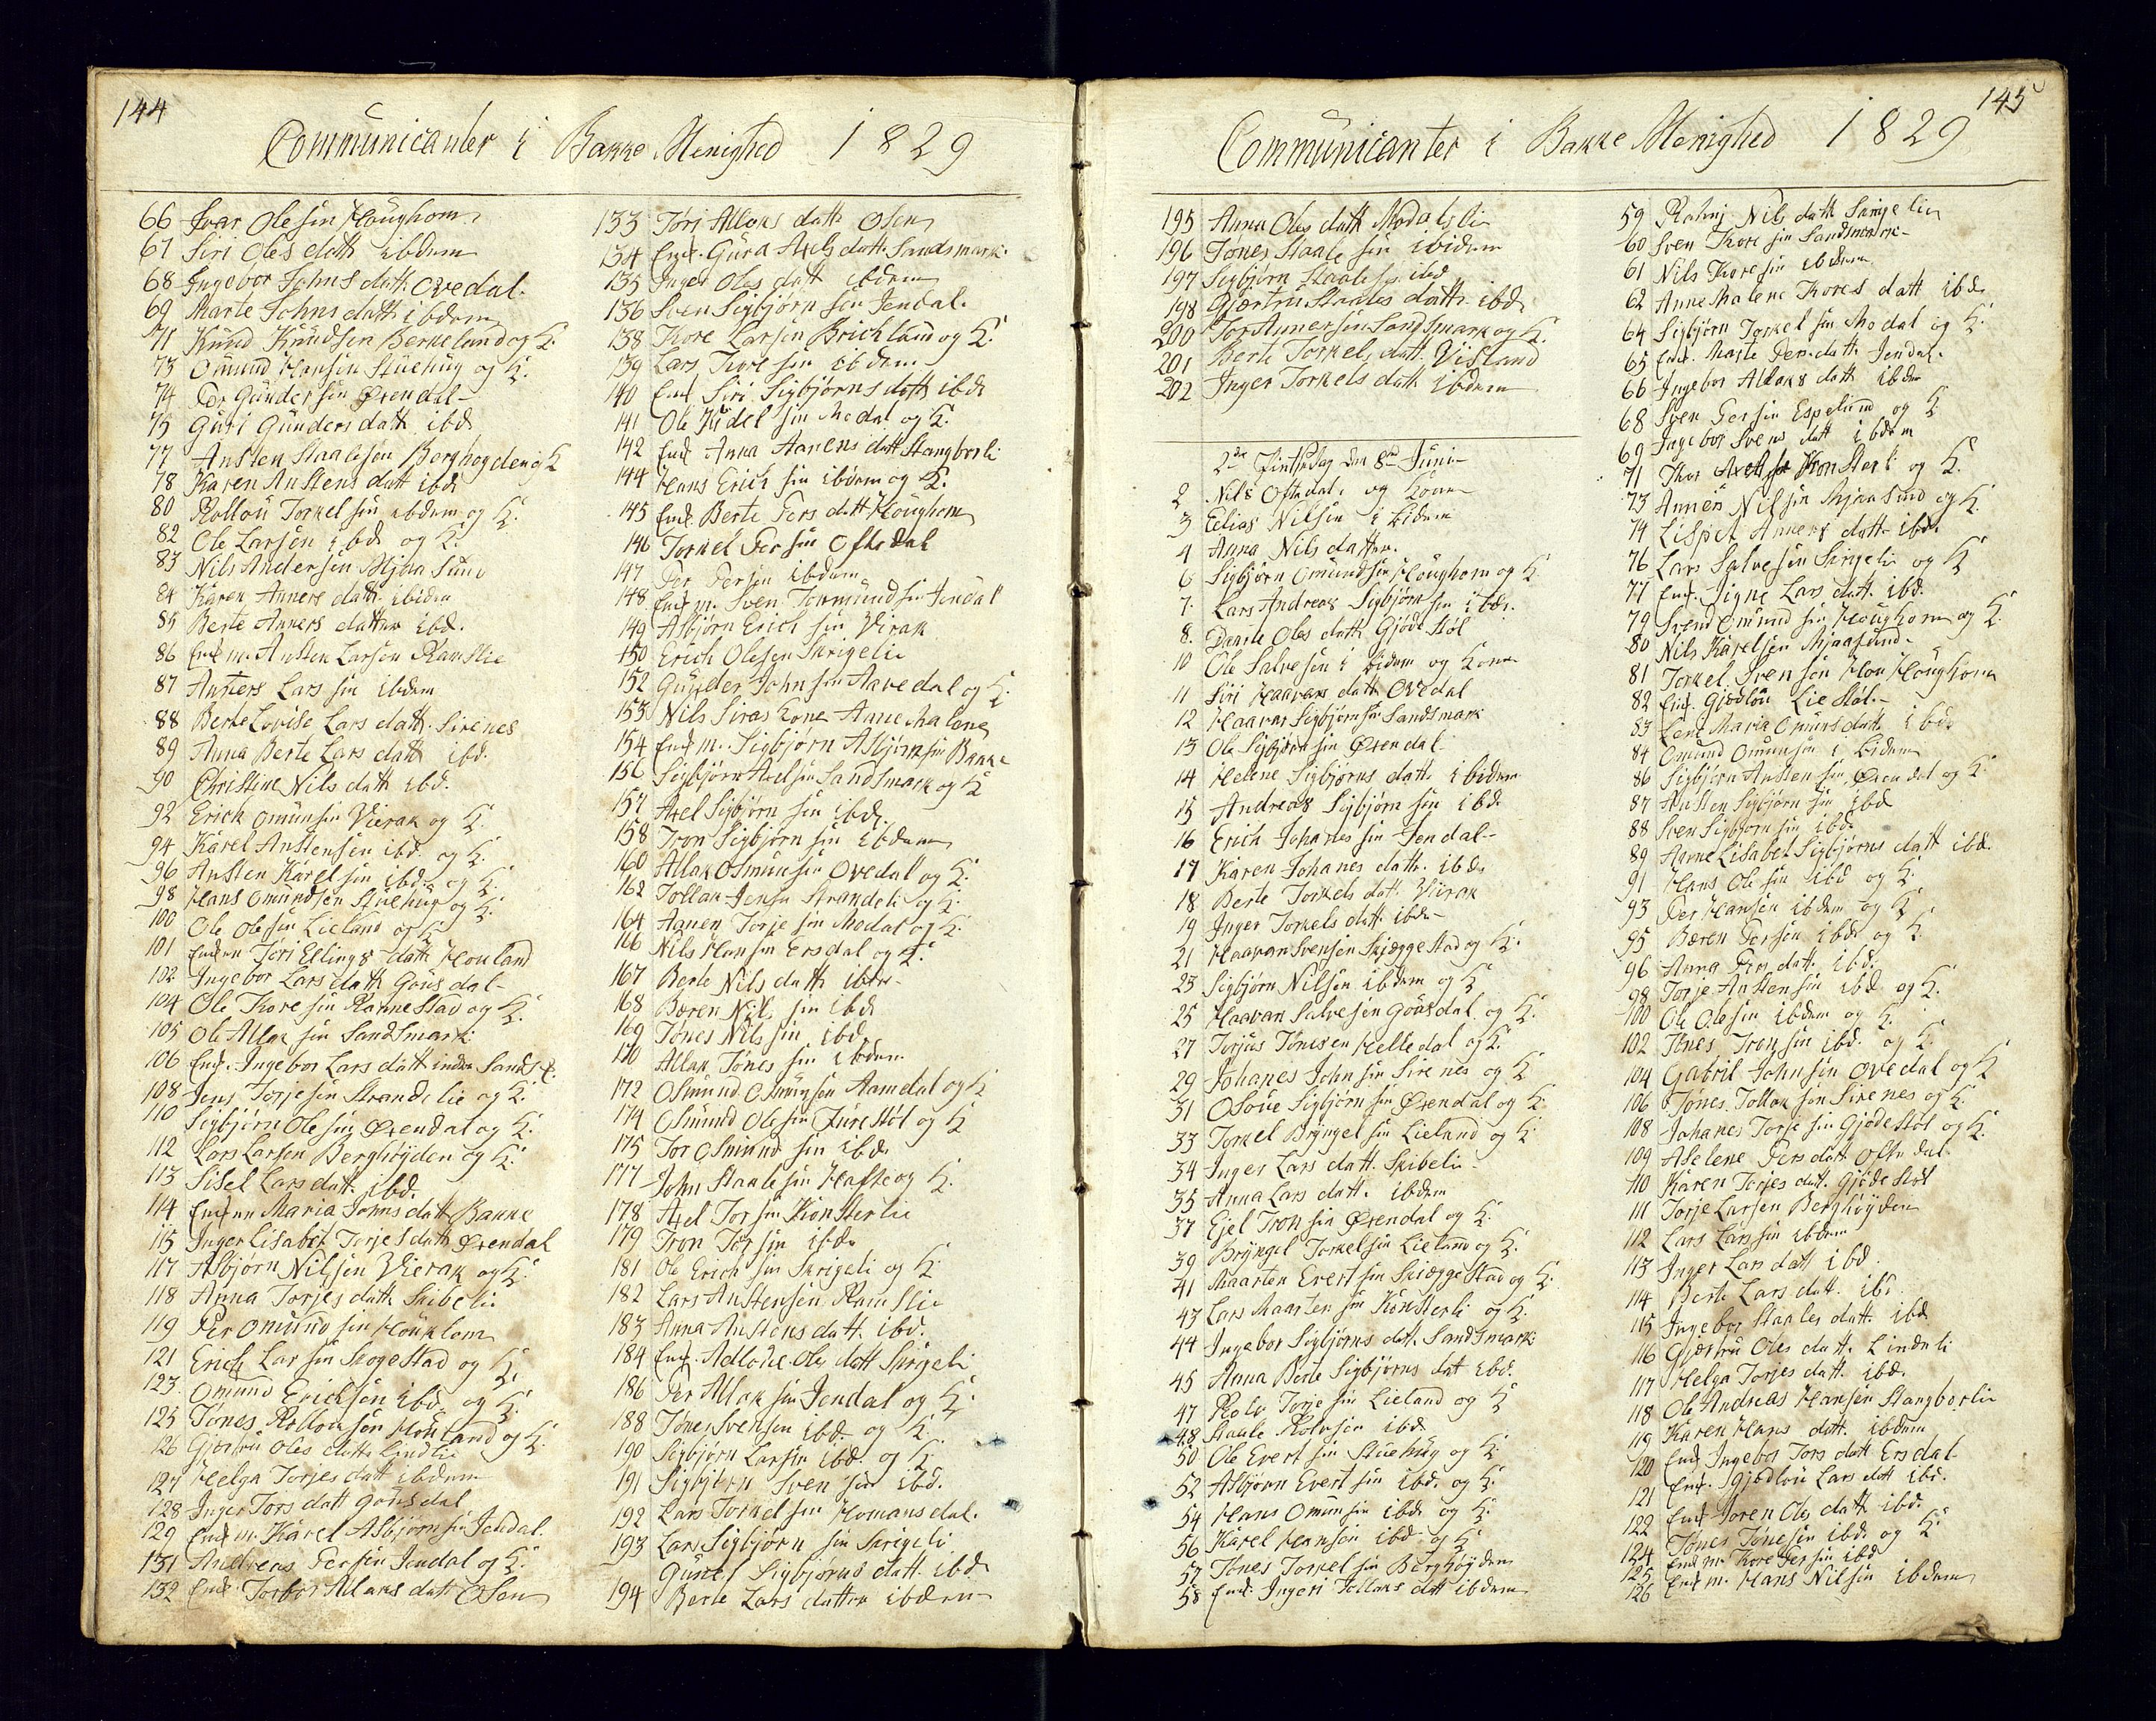 144
Communicanter i Bakke Menighed 1829
66 Ivar Olesin Houghom
67 Siri Oles datt ibdem
68 Ingebor Johns datt Ovedal.
69 Marte Johns datt ibdem
71 Knud Knudsen Berkeland og K.
73 Omund Hansen Stuehug og K.
74 Per Gundersin Øxendal
75 Guri Gunders datt ibd
77 Ansten Staalesøn Berghøyden og K
78 Karen Anstens datt ibd
80 Rollou Torkel sin ibdem og K.
82 Ole Larsen ibd og K.
83 Nils Andersin Mjaasund
84 Karen Anners datt ibidem
85 Berte Anners datter ibd.
86 Enk m. Ansten Larsen Ramslie
87 Anners Lars sin ibdem
88 Berte Lovise Lars datt. Sirenes
89 Anna Berte Lars datt ibd.
90 Christine Nils datt ibd.
92 Erick Omunsin Vierak og K.
94 Karel Anstensen ibd og K.
96 Ansten Karel sin ibd. og K.
98 Hans Omundsen Stuehug og K.
100 Ole Olesin Lieland og K
101 Enken Tøri Ellings datt Houland
102 Ingebor Lars datt Gousdal
104 Ole Tore sin Rannestad og K.
105 Ole Atlak sin Sandsmark
106 Enk. Ingebor Lars datt indre Sands
108 Jens Torjesin Strandelie og K.
110 Sigbjørn Ole sin Øxendal og K.
112 Lars Larsen Berghøyden og K.
113 Sisel Lars datt. ibd.
114 Enken Maria Johns datt Bakke
115 Inger Lisabet Torjes datt Øxendal
117 Asbjørn Nilsen Vierak og K.
118 Anna Torjes datt Skibeli
119 Per Omund sin Houkom
121 Erick Lar sin Skogestad og K.
123. Omund Ericksen ibd. og K.
125 Tønes Rollou søn Houland og K.
126 Gjertru Oles datt Lindlie
127 Helga Torjes datt ibdem
128 Inger Tors datt Gousdal
129 Enk m. Karel Asbjørnsin Jendal.
131 Andreas Persin Jendal og K.
132 Enk Torbor Atlaks datt Osen
133 Tøri Atlaks datt Osen
134 Enk. Gura Axels datt Sandsmark.
135 Inger Oles datt ibdem
136 Sven Sigbjørn sin Jendal.
138 Tore Larsen Brichland og K.
139 Lars Tore sin ibdem
140 Enk Siri Sigbjørns datt ibd
141 Ole Judel sin Modal og K.
142 Enk Anna Aanens datt Stangborli
144 Hans Erick sin ibdem og K.
145 Enk. Berte Pers datt Houghom
146 Torkel Per sin Oftedal
147 Per Persen ibdem
148 Enk m. Sven Tormund sin Jendal
149 Asbjørn Erick sin Virak
150 Erick Olesen Skrigelie
152 Gunder John sin Aavedal og K.
153 Nils Siras kone Anne Malene
154 Enk m. Sigbjørn Asbjørnsin Bakke
156 Sigbjørn Axel sin Sandsmark og K
157 Axel Sigbjørn sin ibd.
158 Tron Sigbjørn sin ibdem
160 Atlak Osmunsin Ovedal og K.
162 Tollak Jensen Strandeli og K.
164 Aanen Torje sin Modal og K.
166 Nils Hansin Ersdal og K.
167 Berte Nils datt ibdm
168 Bæren Nils sin ibd
169 Tønes Nils sin ibd.
170 Atlak Tønes sin ibdem
172 Osmund Osmunsen Aamdal og K
174 Osmund Olesin Furestøl og K
175 Tor Osmund sin ibd.
177 John Staalesin Hafte og K.
178 Axel Tor sin Konsterlie
179 Tron Tor sin ibd.
181 Ole Erick sin Skrigeli og K.
182 Lars Anstensen Ramslie
183 Anna Anstens datt. ibd.
184 Enk. Adlode Oles datt Skrigeli
186 Per Atlak sin Jendal og K.
188 Tønes Svensen ibd. og K.
190 Sigbjørn Larsin ibd. og K
191 Sigbjørn Sven sin ibd.
192 Lars Torkel sin Homansdal.
193 Lars Sigbjørn sin Skrigeli
Sigbjørns datt. ibd.
194 Berte Lars datter ibdem
145
Communicanter i Bakke Menighed 1829
195 Anna Oles datt Modalsli
196 Tønes Staale sin ibidem
197 Sigbjørn Staalesin ibd
198 Gjertru Staales datt ibd.
200 Tor Annersin Sandsmark og K.
201 Berte Torkels datt. Visland
202 Inger Torkels datt ibdem
2den Pintsedag den 8de Juni
2 Nils Oftedal og Kone
3 Elias Nilsen ibidem
4 Anna Nils datter.
6 Sigbjørn Omundsin Houghom og K
7. Lars Andreas Sigbjørn sin ibd.
8. Daarte Oles datt Gjødestøl
10 Ole Salvesen ibidem og Kone
11 Siri Haavars datt Ovedal
12 Haavar Sigbjørnsin Sandsmark
13 Ole Sigbjørn sin Øxendal
14 Helene Sigbjørns datt. ibidem
15 Andreas Sigbjørn sin ibd.
16 Erick Johanes sin Jendal
17 Karen Johanes datt. ibd.
18 Berte Torkels datt Vierak
19 Inger Torkels datt. ibd.
21 Haavar Svensen Skjæggestad og K.
23 Sigbjørn Nilsen ibdem og K
25 Haavar Salvesen Gousdal og K.
27 Torjus Tønesen Helledal og K.
29 Johanes John sin Sirenes og K
31 Osoue Sigbjørn sin Øxendal og K.
33 Torkel Bryngel sin Lieland og K.
34 Inger Lars datt. Skibeli
35 Anna Lars datt. ibdem
37 Ejel Tron sin Øxendal og K.
39 Bryngel Torkelsin Lieland og K.
41 Maarten Evertsin Skiæggestad og K.
43 Lars Maarten sin Konsterli og K.
44 Ingebor Sigbjørns datt. Sandsmark
45 Anna Berte Sigbjørns dat ibd.
47 Rolv Torje sin Lieland og K
48 Staale Rolvsen ibd.
50 Ole Evert sin Stuehug og K.
52 Asbjørn Evert sin ibd. og K.
54 Hans Omun sin ibd. og K.
56 Karel Hansen ibd. og K
57 Tønes Torkel sin Berghøyden
58 Enk. Ingeri Tollaks datt ibdem
59 Nils datt Skrigelie
60 Sven Tore sin Sandsmark
61 Nils Tore sin ibdem
62 Anne Malene Tores datt ibd.
64 Sigbjørn Torkel sin Modal og K.
65 Enk. Marte Pers datt. Jendal.
66 Ingebor Atlaks datt ibdm
68 Sven Persin Espelund og K
69 Ingebor Svens datt ibdem
71 Thor Konsterli og K.
73 Anners Nilsin Mjaasund og K.
74 Lispet Anners datt. ibd.
76 Lars Salvesen Skrigeli og K
77 Enk. Signe Lars datt. ibd.
79 Svend Omund sin Houghom og K.
80 Nils Karelsen Mjaasund.
81 Torkel Svensøn Houghom
82 Enk. Gjødlou Liestøl.
83 Lene Maria Omuns datt ibd.
84 Omund Omunsen ibidem
86 Sigbjørn Ansten sin Øxendal og K.
87 Ansten Sigbjørn sin ibd
88 Sven Sigbjørn sin ibd.
89 Anne Lisabet Sigbjørns datt ibd.
91 Hans Ole sin ibd og K.
93 Per Hansen ibdem og K
95 Bæren Persen ibd og K.
96 Anna Pers datt. ibd.
98 Torje Ansten sin ibd og K.
100 Ole Olesin ibdem og K.
102 Tønes Tronsin ibd. og K.
104 Gabriel Johnsen Ovedal og K
106 Tønes Tollak søn Sirenes og K.
108 Johanes Torje sin Gjødestøl og K.
109 Aselene Pers datt Oftedal
110 Karen Torjes datt. Gjødestøl
111 Torje Larsen Berghøyden
112 Lars Larsin ibdem
113 Inger Lars datt ibd.
114 Berte Lars datt. ibd.
115 Ingebor Staales datt. ibd.
116 Gjertru Oles datt. Lindeli
117 Helga Torjes datt. ibd.
118 Ole Andreas Hansen Stangborlie
119 Karen Hans datt. ibdem
120 Enk Ingebor Tors datt Ersdal
121 Enk. Gjødlou Lars datt ibd.
122 Enk Joren Oles datt ibd.
124 Tønes Tønesin ibd. og K
125 Enk m. Tore Persin ibd
126 Enk m. Hans Nilsin ibdem